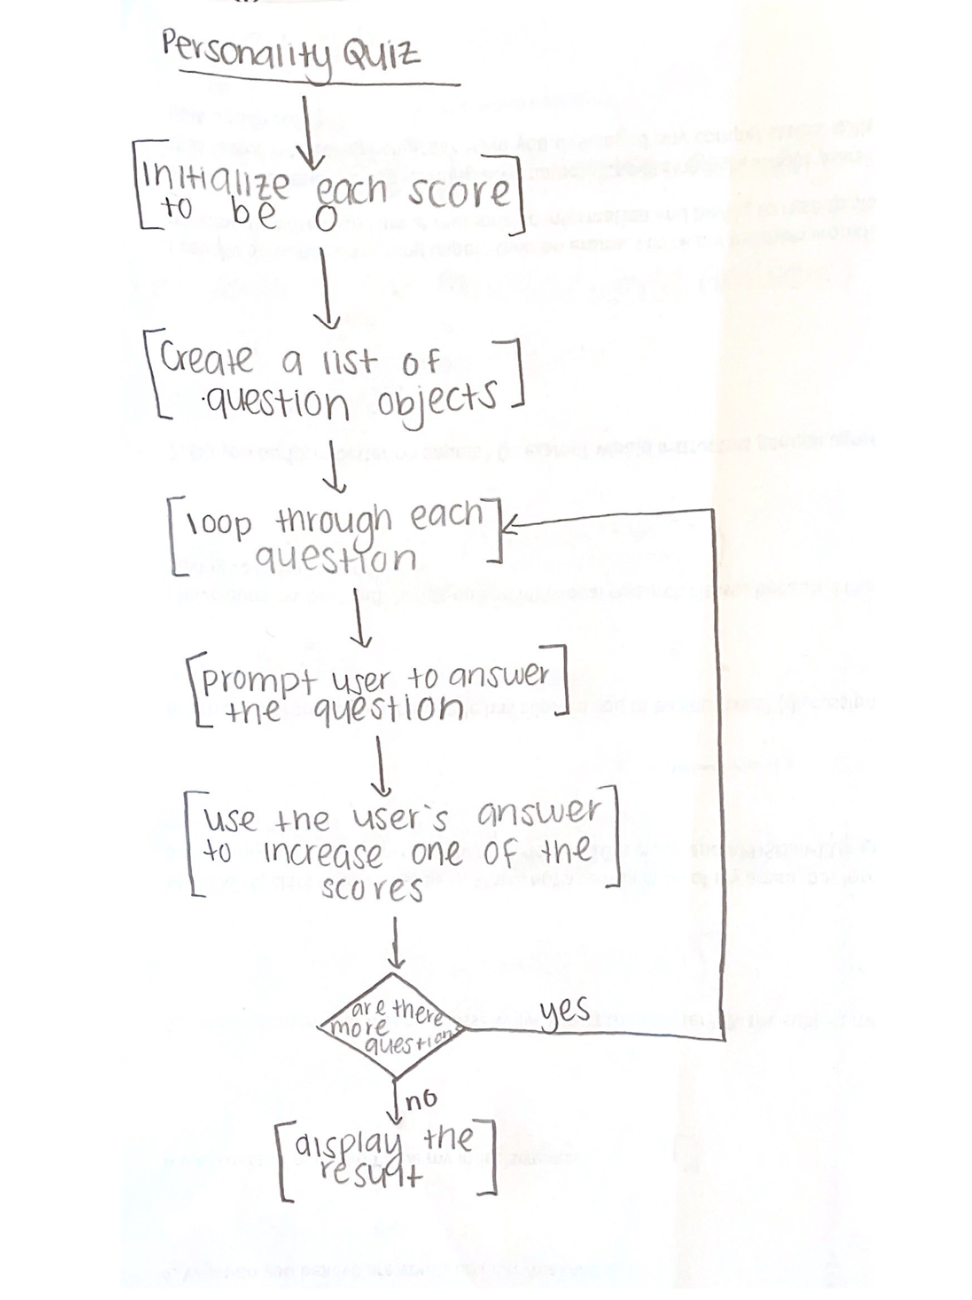 Personality Quiz
Initialize each score
to be 0
Create a list of
question objects
loop through each
question
prompt user to answer
the question
use the user's answer
to increase one of the
scores
are there
more
question
yes
no
display the
result